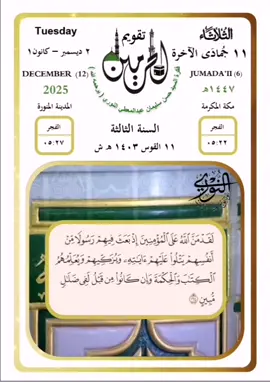 Tuesday
الثلاثاء
تقويم
الحرمين
١١ جُمادَى الآخرة
٢ ديسمبر – كانون١
DECEMBER (12)
JUMADA'II (6)
2025
١٤٤٧هـ
المدينة المنورة
مكة المكرمة
الفجر
السنة الثالثة
الفجر
٠٥:٢٧
١١ القوس ١٤٠٣ هـ ش
٠٥:٢٢
لَقَدْ مَنَّ اللَّهُ عَلَى الْمُؤْمِنِينَ إِذْ بَعَثَ فِيهِمْ رَسُولًا مِنْ
أَنْفُسِهِمْ يَتْلُوا عَلَيْهِمْ ءَايَٰتِهِۦ وَيُزَكِّيهِمْ وَيُعَلِّمُهُمُ
الْكِتَٰبَ وَالْحِكْمَةَ وَإِن كَانُوا مِن قَبْلُ لَفِى ضَلَٰلٍ
مُّبِينٍ